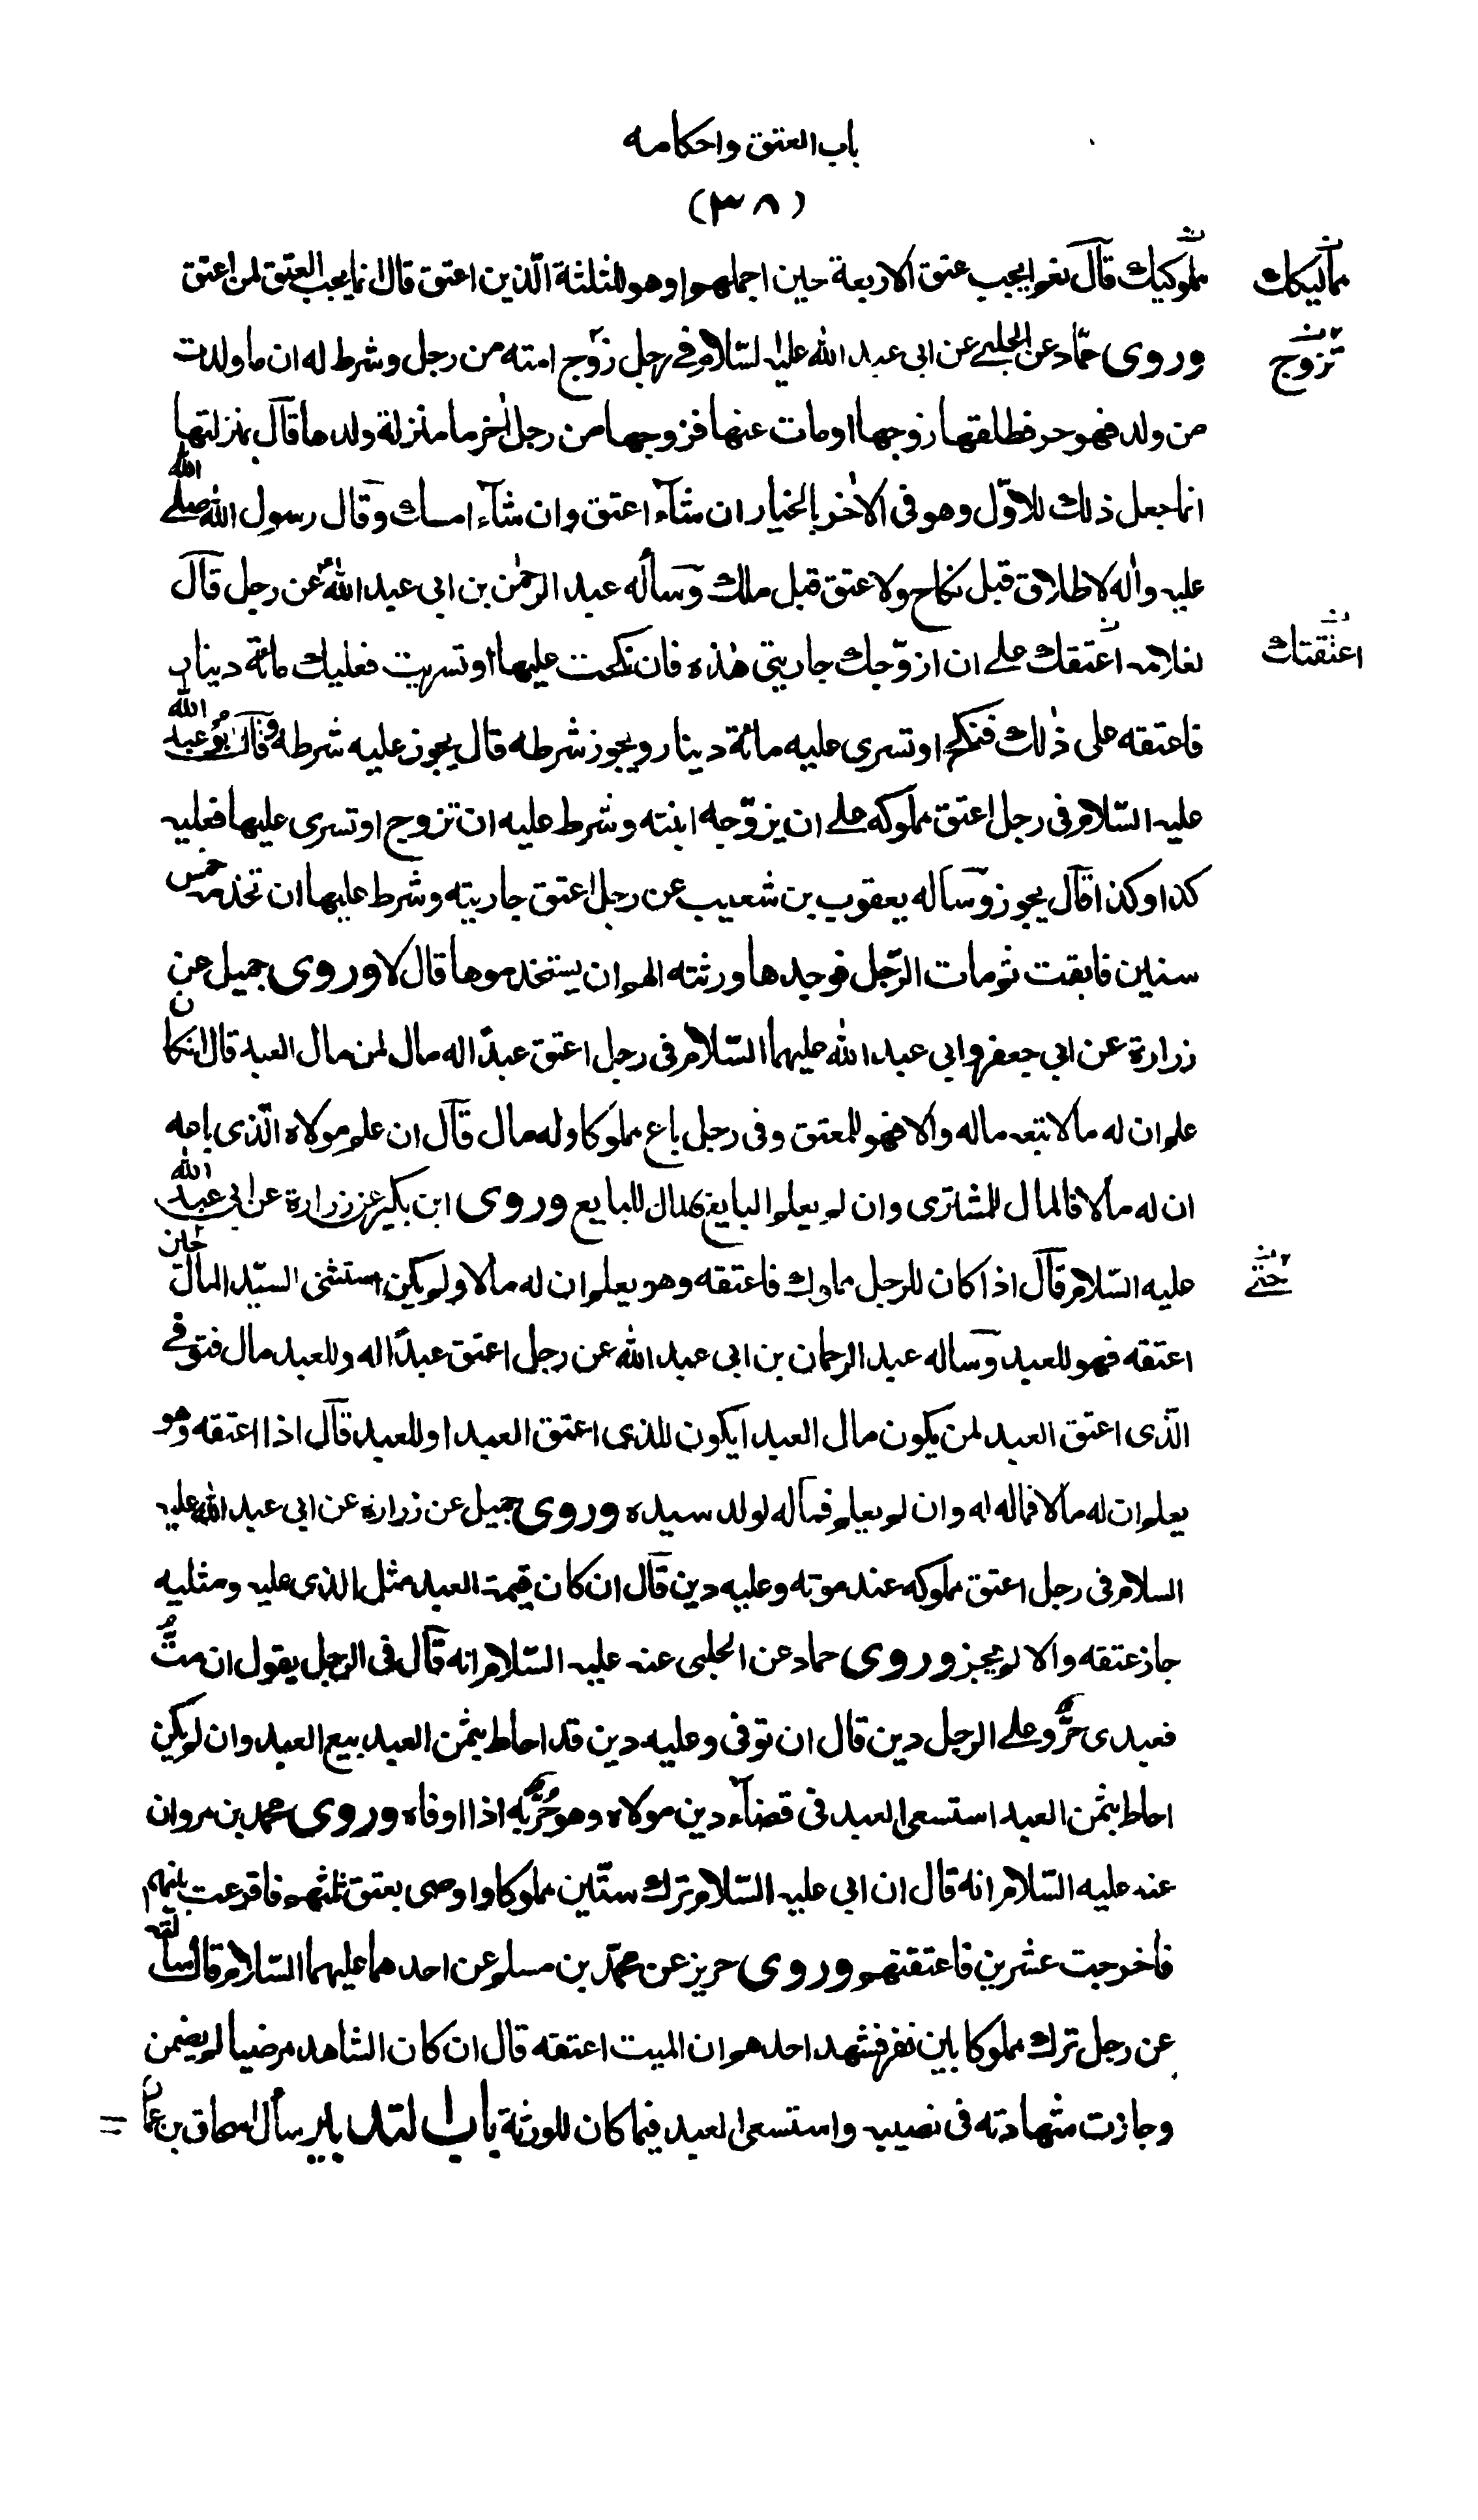 باب العتق واحكامه
(٣٨)
مملوكيك قال نعم ايجب عتق الاربعة حين اجملهم او هو للثلثة الّذين اعتق قال انما يجب العتق لمن اعتق
مماليكك
وروى حمّاد عن الحلبي عن ابى عبد الله عليه السّلام في رجل زوّج امته من رجل وشرط له ان ما ولدت
تزوج
من ولد فهو حر فطلقها زوجها او مات عنها فزوجها من رجل اٰخر ما منزلة ولدها قال بمنزلتها
انما جعل ذلك للاوّل وهو فى الاٰخر بالخيار ان شآء اعتق وان شآء امسك وقال رسول الله صلى الله
عليه واٰله لا طلاق قبل نكاح ولا عتق قبل ملك وسأله عبد الرحمٰن بن ابى عبد الله عن رجل قال
لغلامه اعتقك على ان ازوّجك جاريتى هٰذه فان نكحت عليها او تسريت فعليك مائة دينار
اعتقتك
فاعتقه على ذٰلك فنكح او تسرى عليه مائة دينار ويجوز شرطه قال يجوز عليه شرطه وقال ابو عبد الله
عليه السّلام فى رجل اعتق مملوكه على ان يزوّجه ابنته وشرط عليه ان تزوج او تسرى عليها فعليه
كذا وكذا قال يجوز وسأله يعقوب بن شعيب عن رجل اعتق جاريته وشرط عليها ان تخدمه خمس
سنين فابقت ثم مات الرّجل فوجدها ورثته الهم ان يستخدموها قال لا وروى جميل عن
زرارة عن ابى جعفر وابى عبد الله عليهما السّلام فى رجل اعتق عبدًا له مال لمن مال العبد قال ان كان
علم ان له مالا تبعه ماله والا فهو للمعتق وفى رجل باع مملوكا وله مال قال ان علم مولاه الّذى باعه
ان له مالا فالمال للمشترى وان لم يعلم البايع فالمال للبايع وروى ابن بكير عن زرارة عن ابى عبد الله
عليه السّلام قال اذا كان للرجل مملوك فاعتقه وهو يعلم ان له مالا ولم يكن استثنى السيّد المال حين
حتى
اعتقه فهو للعبد وسأله عبد الرحمان بن ابى عبد الله عن رجل اعتق عبدًا له وللعبد مال فتوفي
الّذى اعتق العبد لمن يكون مال العبد ايكون للذى اعتق العبد او للعبد قال اذا اعتقه وهو
يعلم ان له مالا فماله له وان لم يعلم فماله لولد سيده وروى جميل عن زرارة عن ابى عبد الله عليه
السلام فى رجل اعتق مملوكه عند موته وعليه دين قال ان كان قيمة العبد مثل الذى عليه ومثليه
جاز عتقه والا لم يجز وروى حماد عن الحلبى عنه عليه السّلام انه قال فى الرجل يقول ان متُّ
فعبدى حرٌّ وعلى الرجل دين قال ان توفى وعليه دين قد احاط بثمن العبد بيع العبد وان لم يكن
احاط بثمن العبد استسعى العبد فى قضآء دين مولاه وهو حُرٌّ به اذا اوفاه وروى محمد بن مروان
عنه عليه السّلام انه قال ان ابى عليه السّلام ترك ستّين مملوكا واوصى بعتق ثلثهم فاقرعت بينهم
فاخرجت عشرين فاعتقتهم وروى حريز عن محمّد بن مسلم عن احدهما عليهما السّلام قال سألته
عن رجل ترك مملوكا بين نفر فشهد احدهم ان الميت اعتقه قال ان كان الشاهد مرضيا لم يضمن
وجازت شهادته فى نصيبه واستسعى العبد فيما كان للورثة باب التدبير سأل اسحاق بن عمار